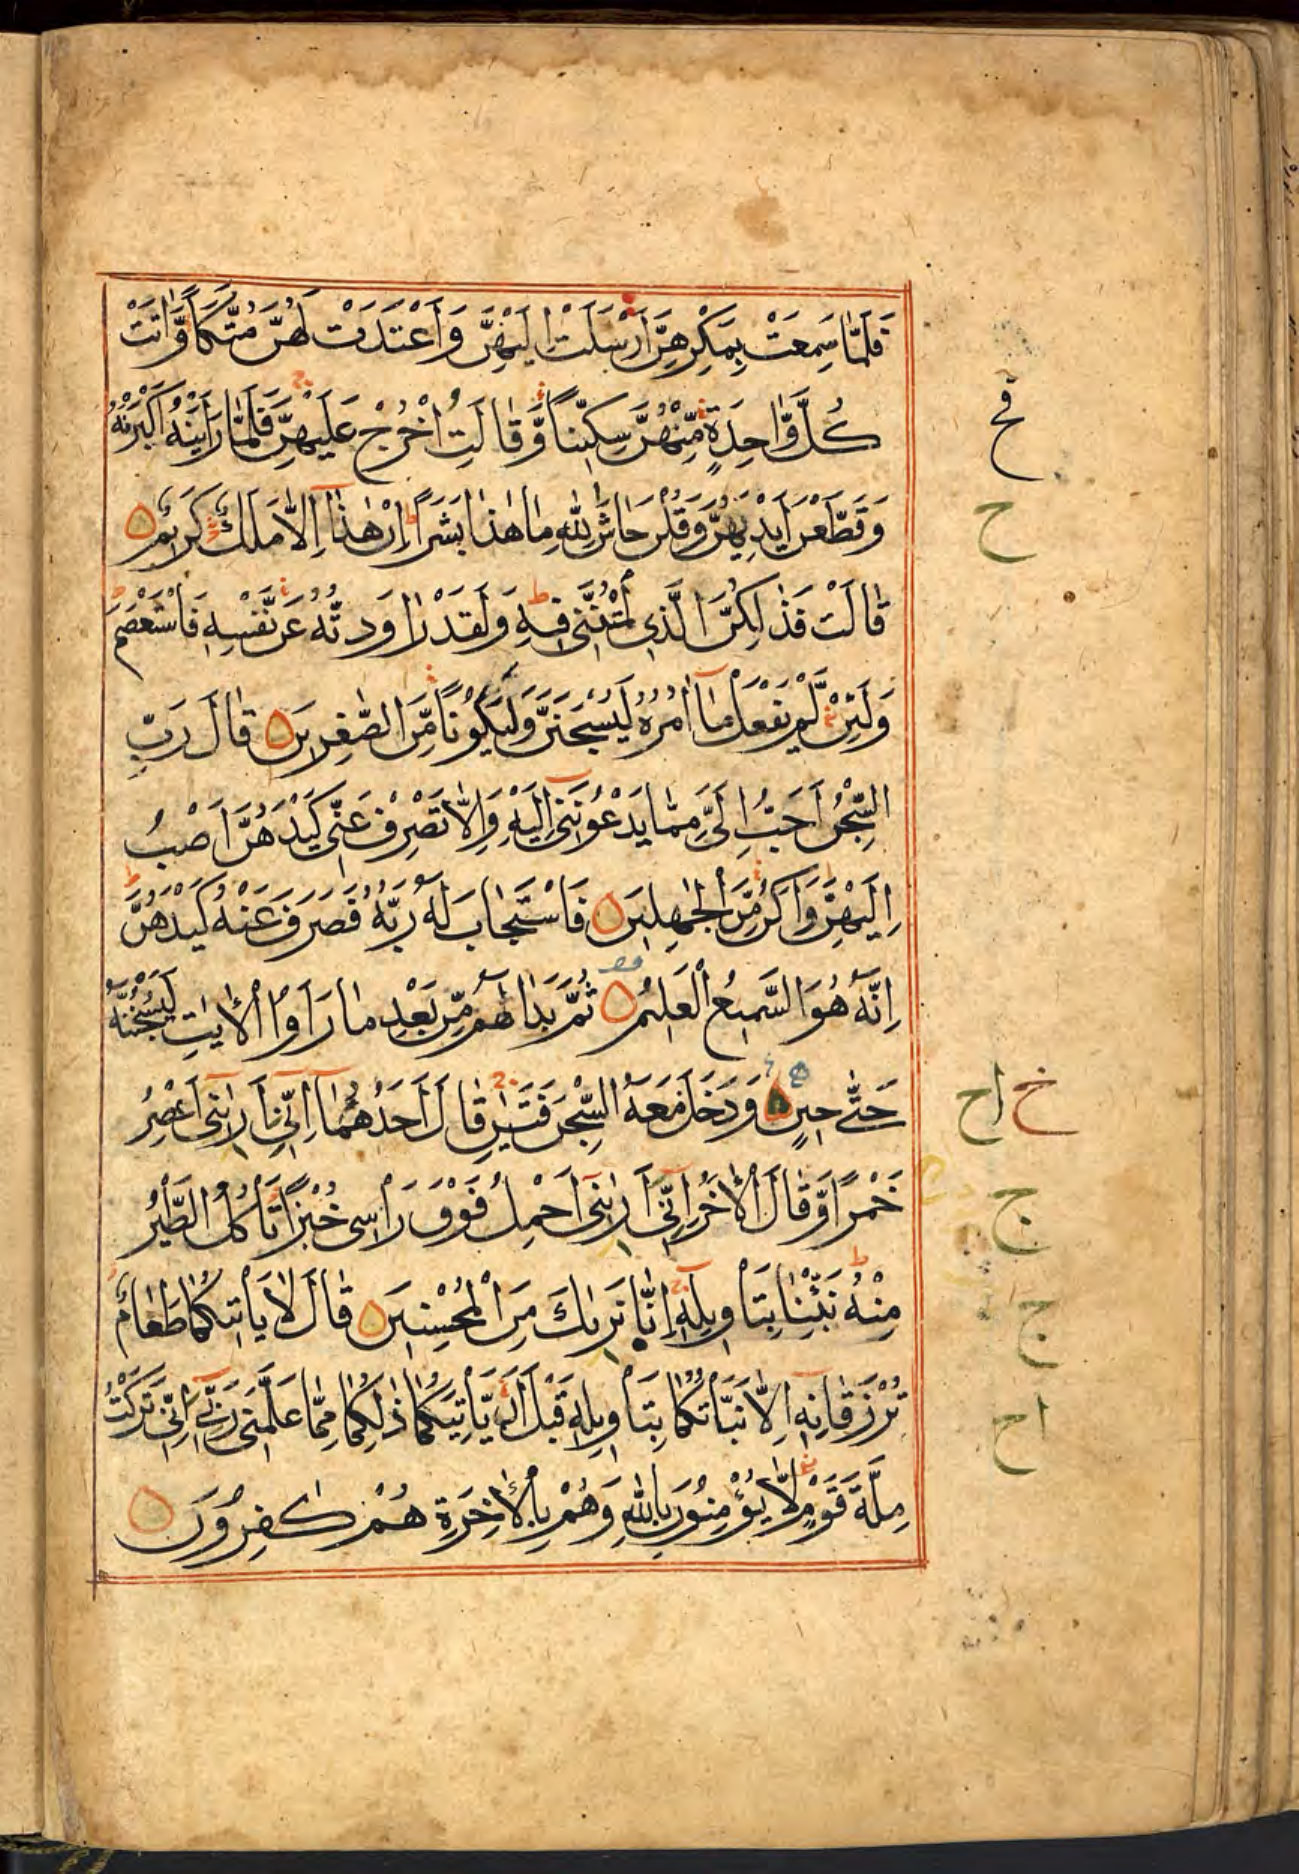 فَلَمَّا سَمِعَتْ بِمَكْرِهِنَّ اَرْسَلَتْ اِلَيْهِنَّ وَاَعْتَدَتْ لَهُنَّ مُتَّكَاً وَّاٰتَتْ
كُلَّ وَّاحِدَةٍ مِّنْهُنَّ سِكِّيْنًا وَّقَالَتِ اخْرُجْ عَلَيْهِنَّ فَلَمَّا رَاَيْنَهٗ اَكْبَرْنَهٗ
وَقَطَّعْنَ اَيْدِيَهُنَّ وَقُلْنَ حَاشَ لِلّٰهِ مَا هٰذَا بَشَرًا اِنْ هٰذَا اِلَّا مَلَكٌ كَرِيْمٌ
قَالَتْ فَذٰلِكُنَّ الَّذِي لُمْتُنَّنِي فِيْهِ وَلَقَدْ رَاوَدتُّهٗ عَنْ نَّفْسِهٖ فَاسْتَعْصَمَ
وَلَئِنْ لَّمْ يَفْعَلْ مَا اٰمُرُهٗ لَيُسْجَنَنَّ وَلَيَكُوْنًا مِّنَ الصّٰغِرِيْنَ قَالَ رَبِّ
السِّجْنُ اَحَبُّ اِلَيَّ مِمَّا يَدْعُوْنَنِي اِلَيْهِ وَاِلَّا تَصْرِفْ عَنِّي كَيْدَهُنَّ اَصْبُ
اِلَيْهِنَّ وَاَكُنْ مِّنَ الْجٰهِلِيْنَ فَاسْتَجَابَ لَهٗ رَبُّهٗ فَصَرَفَ عَنْهُ كَيْدَهُنَّ
اِنَّهٗ هُوَ السَّمِيْعُ الْعَلِيْمُ ثُمَّ بَدَا لَهُمْ مِّنْ بَعْدِ مَا رَاَوُا الْاٰيٰتِ لَيَسْجُنُنَّهٗ
حَتّٰى حِيْنٍ وَدَخَلَ مَعَهُ السِّجْنَ فَتَيٰنِ قَالَ اَحَدُهُمَا اِنِّي اَرٰىنِي اَعْصِرُ
خَمْرًا وَّقَالَ الْاٰخَرُ اِنِّي اَرٰىنِي اَحْمِلُ فَوْقَ رَاْسِي خُبْزًا تَاْكُلُ الطَّيْرُ
مِنْهُ نَبِّئْنَا بِتَاْوِيْلِهٖ اِنَّا نَرٰىكَ مِنَ الْمُحْسِنِيْنَ قَالَ لَا يَاْتِيْكُمَا طَعَامٌ
تُرْزَقَانِهٖ اِلَّا نَبَّاْتُكُمَا بِتَاْوِيْلِهٖ قَبْلَ اَنْ يَّاْتِيَكُمَا ذٰلِكُمَا مِمَّا عَلَّمَنِي رَبِّي اِنِّي تَرَكْتُ
مِلَّةَ قَوْمٍ لَّا يُؤْمِنُوْنَ بِاللّٰهِ وَهُمْ بِالْاٰخِرَةِ هُمْ كٰفِرُوْنَ